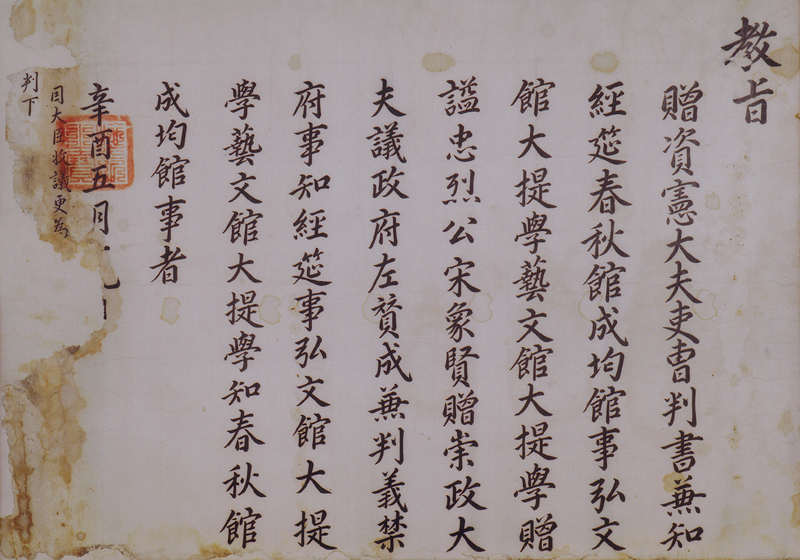 教旨
贈資憲大夫吏曺判書兼知
經筵春秋館成均館事弘文
館大提學藝文館大提學贈
諡忠烈公宋象賢贈崇政大
夫議政府左賛成兼判義禁
府事知經筵事弘文館大提
學藝文館大提學知春秋館
成均館事者
辛酉五月
因大臣收議更爲
判下